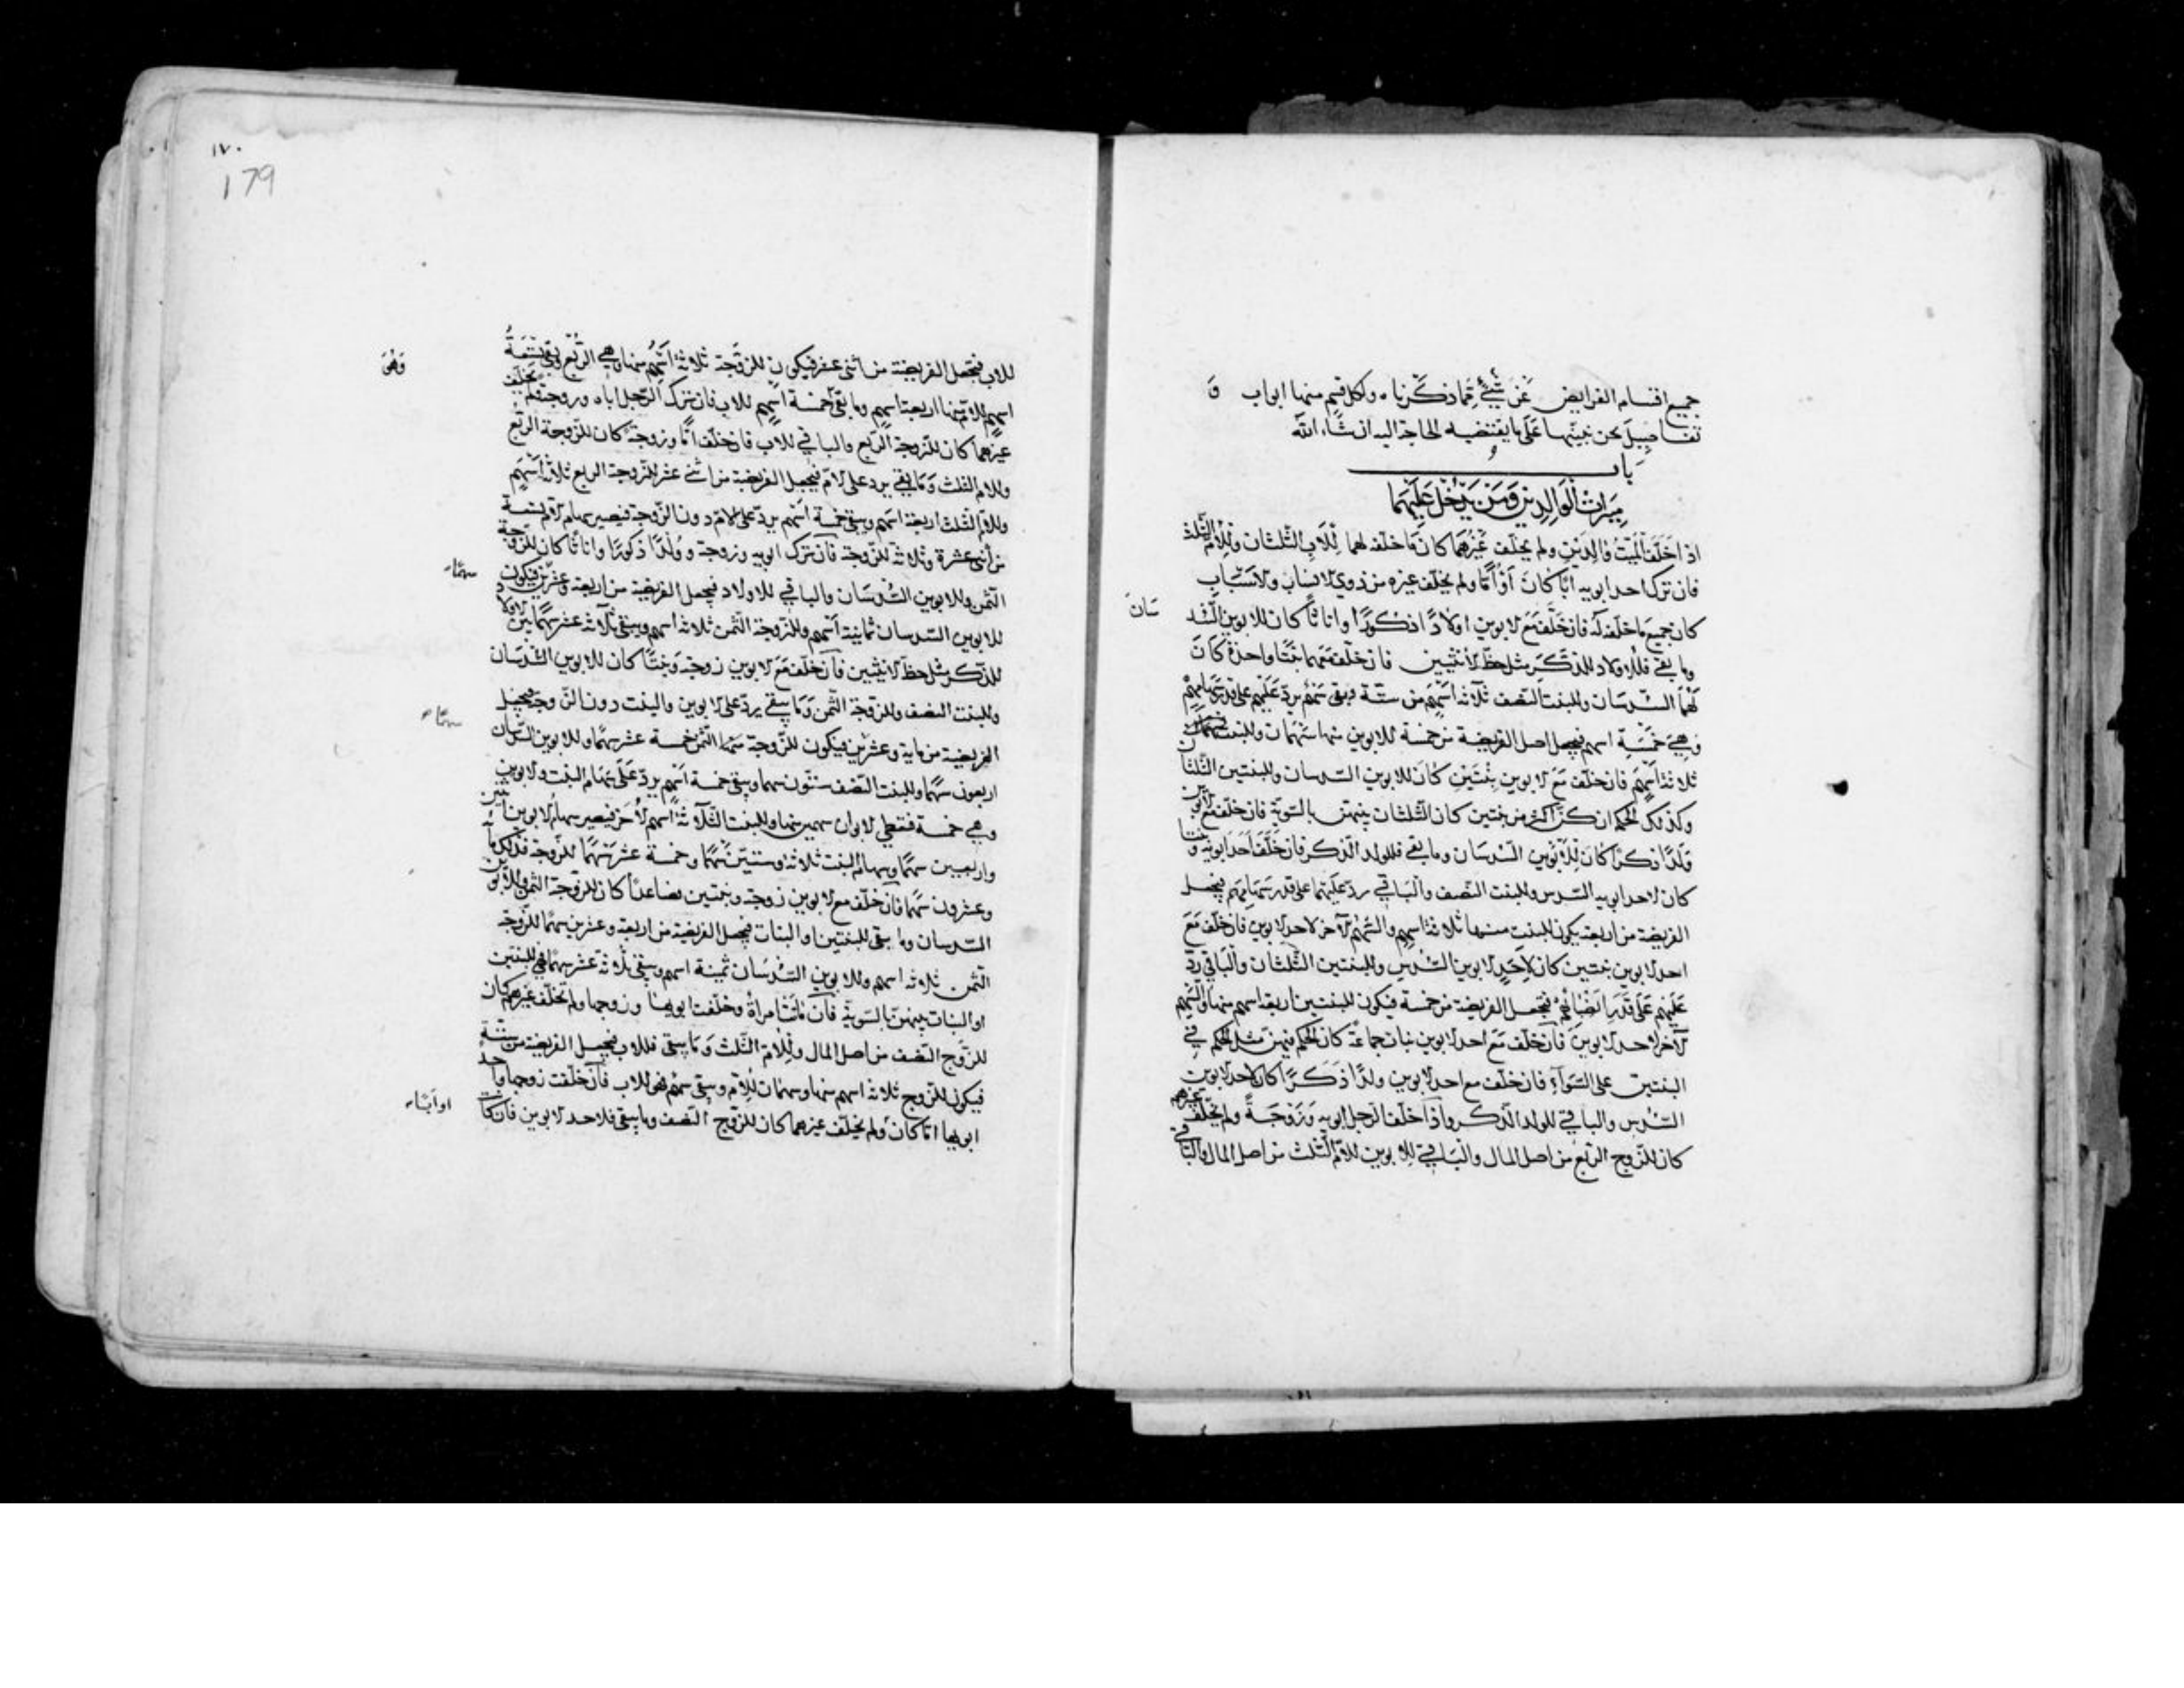 جميع اقسام الفرايض عن شئ مما ذكرناه ولكل قسم منها ابواب و
تفاصيل نحن نبينها على ما يقتضيه الحاجة اليه ان شاء الله
باب
ميراث الوالدين ومن يدخل عليهما
اذا خلف الميت والدين ولم يخلف غيرهما كان ما خلفه لهما للاب الثلثان وللام الثلث
فان ترك احد ابويه ابا كان او اما ولم يخلف غيره من ذوي الانساب والاسباب
كان جميع ما خلفه له فان خلف مع الابوين اولادا ذكورا واناثا كان للابوين السد
سان
وما بقي فللاولاد للذكر مثل حظ الانثيين فان خلف معهما بنتا واحدة كان
لهما السدسان وللبنت النصف ثلاثة اسهم من ستة وبقى سهم يرد عليهم على قدر سهامهم
وهي خمسة اسهم فيجعل اصل الفريضة من خمسة للابوين منها سهمان وللبنت
ثلاثة اسهم فان خلف مع الابوين بنتين كان للابوين السدسان وللبنتين الثلثان
وكذلك الحكم ان كن اكثر من بنتين كان الثلثان بينهن بالسوية فان خلف مع الابوين
ولدا ذكرا كان للابوين السدسان وما بقي فللولد الذكر فان خلف احد ابويه وبنتا
كان لاحد ابويه السدس وللبنت النصف والباقي رد عليهما على قدر سهامهم فيجعل
الفريضة من اربعة يكون للبنت منها ثلاثة اسهم والسهم الآخر لاحد الابوين فان خلف مع
احد الابوين بنتين كان لاحد الابوين السدس وللبنتين الثلثان والباقي رد
عليهم على قدر انصبائهم فيجعل الفريضة من خمسة فيكون للبنتين اربعة اسهم منها والسهم
الآخر لاحد الابوين فان خلف مع احد الابوين بنات جماعة كان الحكم فيهن مثل الحكم في
البنتين على السواء فان خلف مع احد الابوين ولدا ذكرا كان لاحد الابوين
السدس والباقي للولد الذكر واذا خلف الرجل ابويه وزوجة ولم يخلف غيرهم
كان للزوج الربع من اصل المال والباقي للابوين للام الثلث من اصل المال والباقي
١٧٠
179
للاب فيجعل الفريضة من اثنى عشر فيكون للزوجة ثلاثة اسهم منها وهي الربع وبقى تسعة
وهو
اسهم للام منها اربعة اسهم وما بقى خمسة اسهم للاب فان ترك الرجل اباه وزوجة ولم يخلف
غيرهما كان للزوجة الربع والباقي للاب فان خلف اما وزوجة كان للزوجة الربع
وللام الثلث وما بقي يرد على الام فيجعل الفريضة من اثنى عشر للزوجة الربع ثلاثة اسهم
وللام الثلث اربعة اسهم وبقى خمسة اسهم يرد على الام دون الزوجة فيصير سهام الام تسعة
من اثنى عشرة وثلاثة للزوجة فان ترك ابويه وزوجة وولدا ذكورا واناثا كان للزوجة
الثمن وللابوين السدسان والباقي للاولاد فيجعل الفريضة من اربعة وعشرين فيكون
سهما
للابوين السدسان ثمانية اسهم وللزوجة الثمن ثلاثة اسهم وبقى ثلاثة عشر سهما بين الاولاد
للذكر مثل حظ الانثيين فان خلف مع الابوين زوجة وبنتا كان للابوين السدسان
وللبنت النصف وللزوجة الثمن وما يبقى يرد على الابوين والبنت دون الزوجة فيجعل
سهما
الفريضة من مائة وعشرين فيكون للزوجة منها الثمن خمسة عشر سهما وللابوين السدسان
اربعون سهما وللبنت النصف ستون سهما ويبقى خمسة اسهم يرد على سهام البنت والابوين
وهي خمسة فنعطي الابوان سهمين منها وللبنت الثلاثة اسهم الاخر فيصير سهام الابوين اثنين
واربعين سهما وسهام البنت ثلاثة وستين سهما وخمسة عشر سهما للزوجة فذلك مائة
وعشرون سهما فان خلف مع الابوين زوجة وبنتين فصاعدا كان للزوجة الثمن وللابوين
السدسان وما يبقى للبنتين او البنات فيجعل الفريضة من اربعة وعشرين سهما للزوجة
الثمن ثلاثة اسهم وللابوين السدسان ثمنية اسهم ويبقى ثلاثة عشر سهما فهي للبنتين
او البنات بينهن بالسوية فان ماتت امرأة وخلفت ابويها وزوجها ولم تخلف غيرهم كان
للزوج النصف من اصل المال وللام الثلث وما يبقى فللاب فيجعل الفريضة من ستة
فيكون للزوج ثلاثة اسهم منها وسهمان للام ويبقى سهم فهو للاب فان خلفت زوجها واحد
ابويها اما كان ولم يخلف غيرهما كان للزوج النصف وما يبقى فلاحد الابوين فان كان